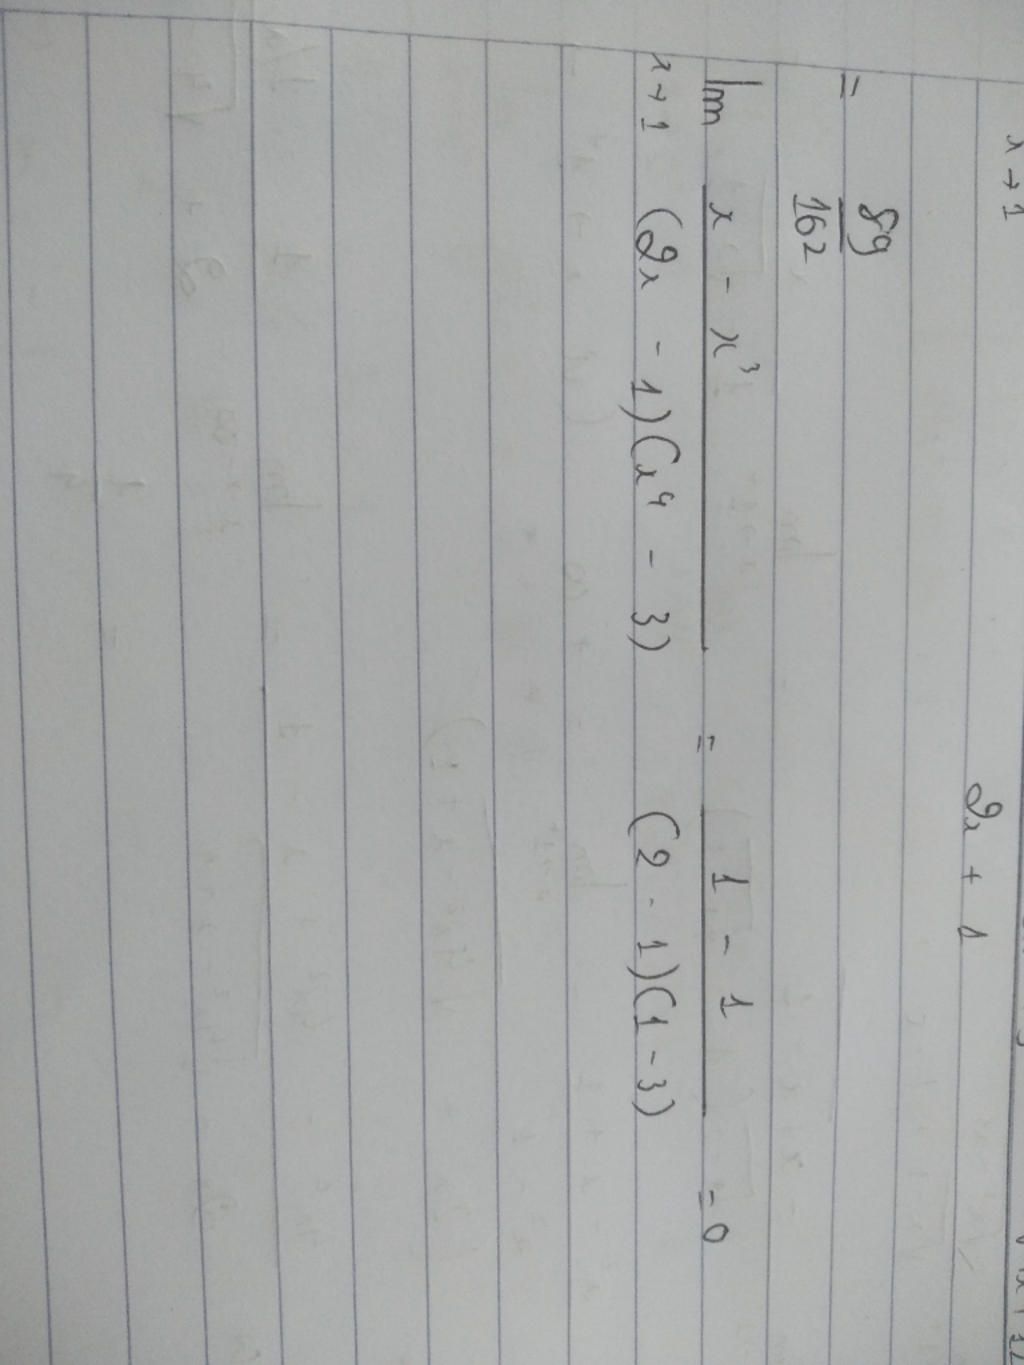 x → 1 2x + 1
= 89/162
lim x → 1 (x - x³)/((2x - 1)(x⁴ - 3)) = (1 - 1)/((2 - 1)(1 - 3)) = 0